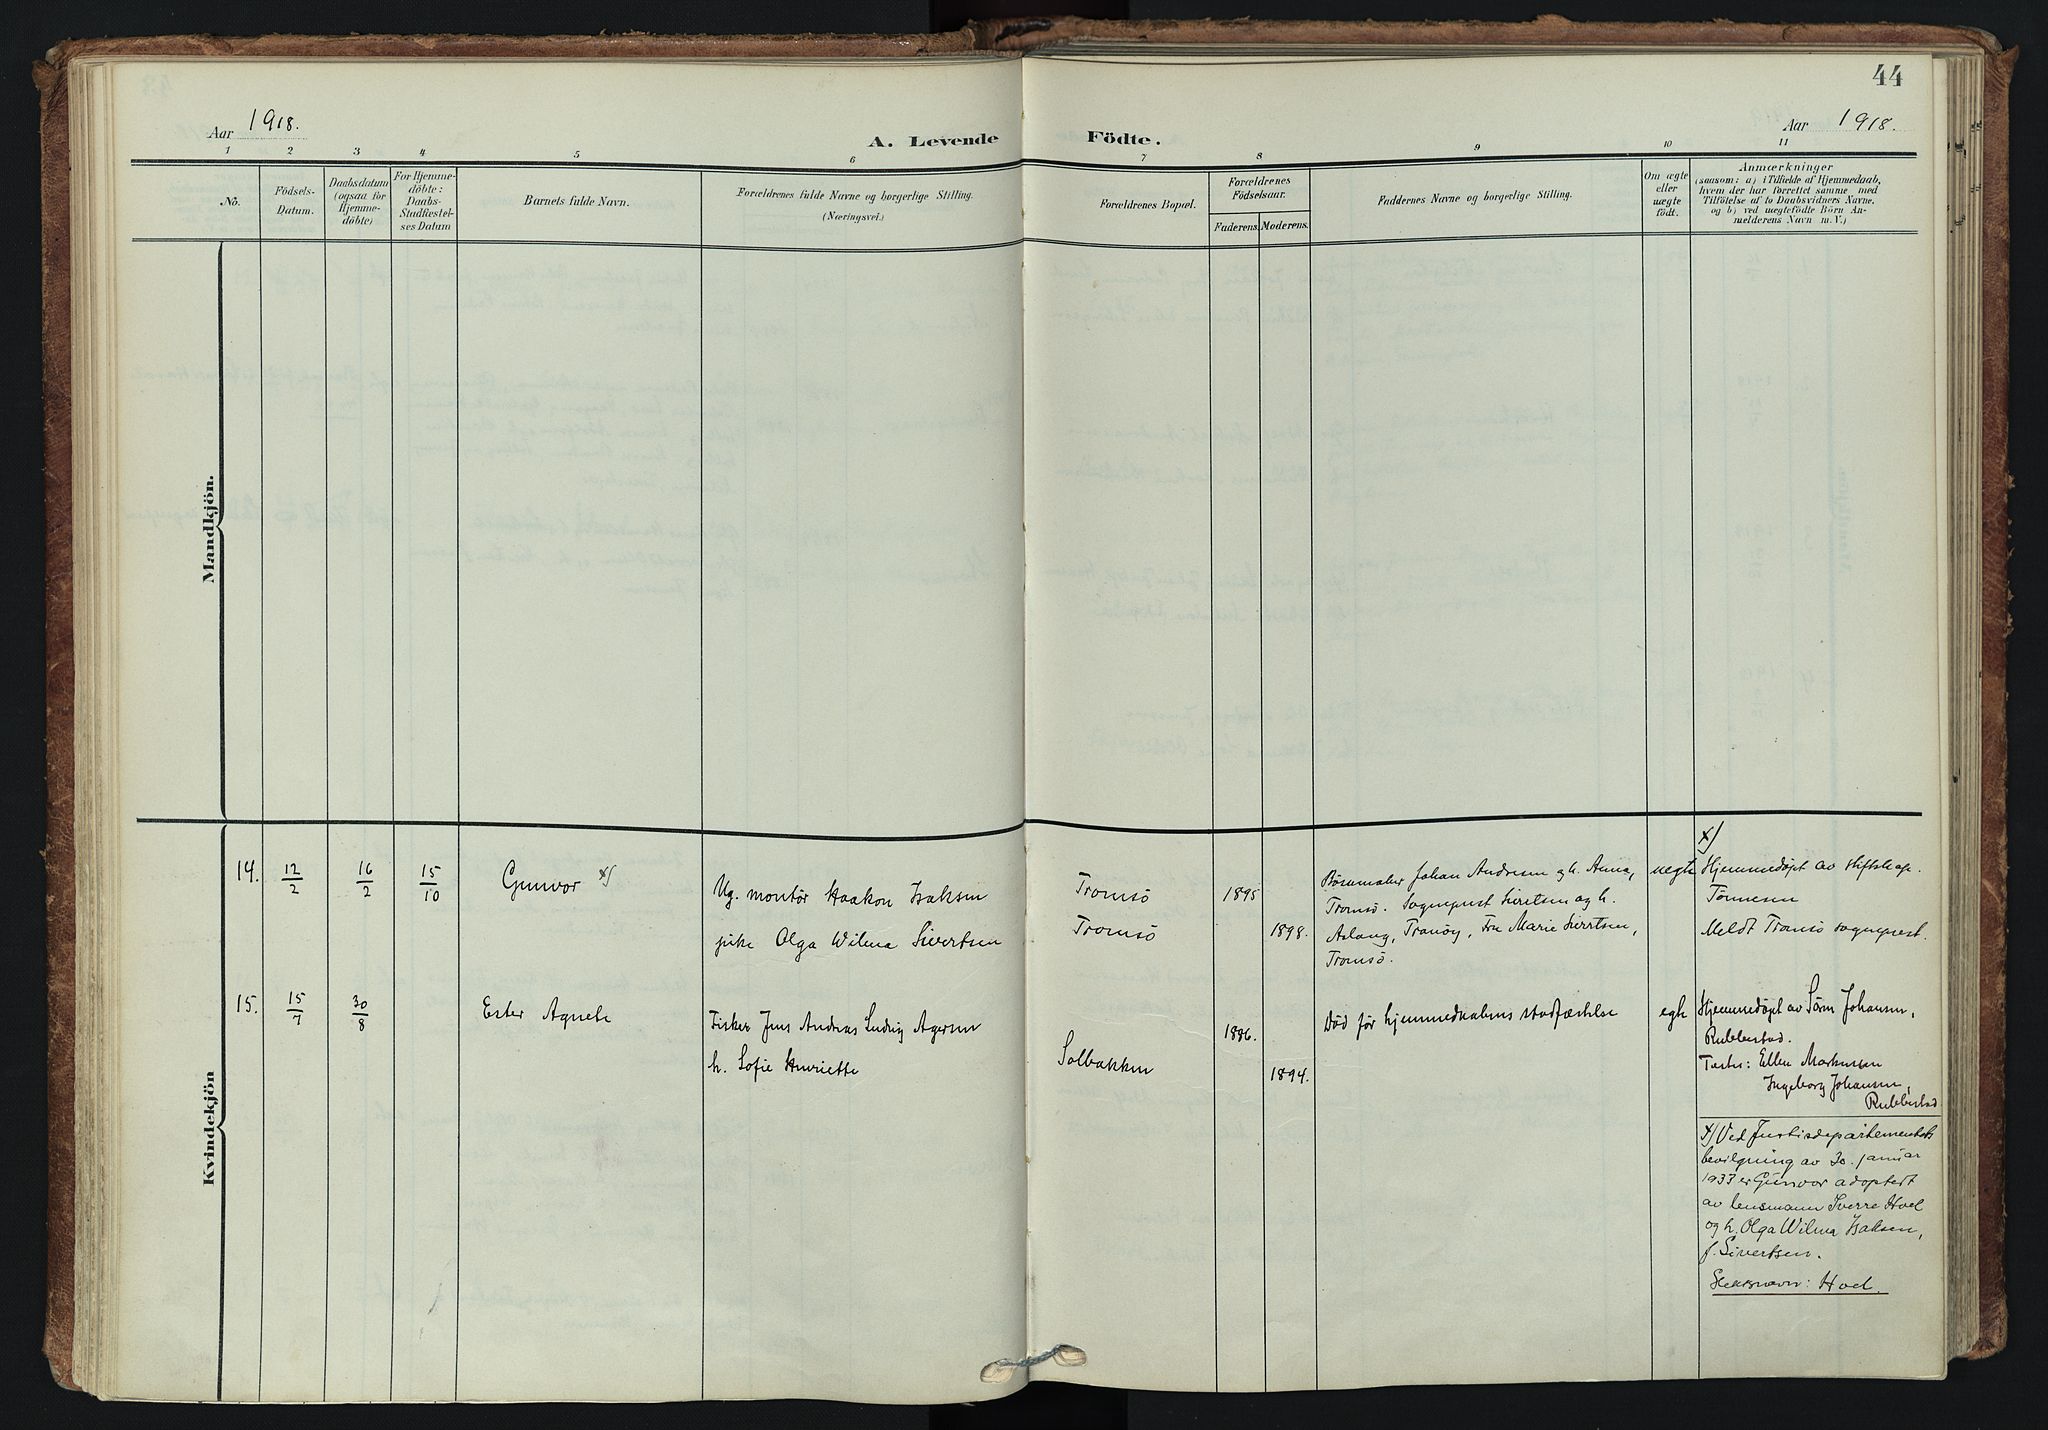 44
Aar 1918.
A. Levende Födte.
Aar 1918.
1 2 3 4 5 6 7 8 9 10 11
No.
Födsels-
Datum.
Daabsdatum
(ogsaa for
Hjemme-
döbte)
For Hjemme-
döbte:
Daabs-
Stadfæstel-
ses Datum
Barnets fulde Navn.
Forældrenes fulde Navne og borgerlige Stilling.
(Næringsvei.)
Forældrenes Bopæl.
Forældrenes
Födselsaar.
Faderens. Moderens.
Faddernes Navne og borgerlige Stilling.
Om ægte
eller
uægte
födt.
Anmærkninger
(saasom: a) i Tilfælde af Hjemmedaab,
hvem der har forrettet samme med
Tilföielse af to Daabsvidners Navne,
og b) ved uægtefödte Börn An-
melderens Navn m. V.)
Mandkjön.
Kvindekjön
14. 12/2 16/2 15/10 Gunvor x)
Ug. montør Haakon Isaksen
pike Olga Wilma Sivertsen
Tromsö
Tromsö
1895
1898.
Johan Andresen og h. Anna,
Tromsö. Sogneprest Sivertsen og h.
Aslaug, Tranöy, Fru Marie Sivertsen,
Tromsö.
uegte
x)
Hjemmedøpt av stiftskap.
Tönnesen
Meldt Tromsö sogneprest.
15. 15/7 30/8 Ester Agnete
Fisker Jens Andreas Ludvig Agersen
h. Sofie Henriette
Solbakken
1886.
1894.
Død før hjemmedaabens stadfæstelse
egte
Hjemmedøpt av Søren Johansen,
Rubbestad.
Testes: Ellen Markussen
Ingeborg Johansen,
Rubbestad
x) Ved Justisdepartementets
bevilgning av 30. januar
1933 er Gunvor adoptert
av lensmann Sverre Hoel
og h. Olga Wilma Isaksen,
f. Sivertsen.
Slektsnavn: Hoel.